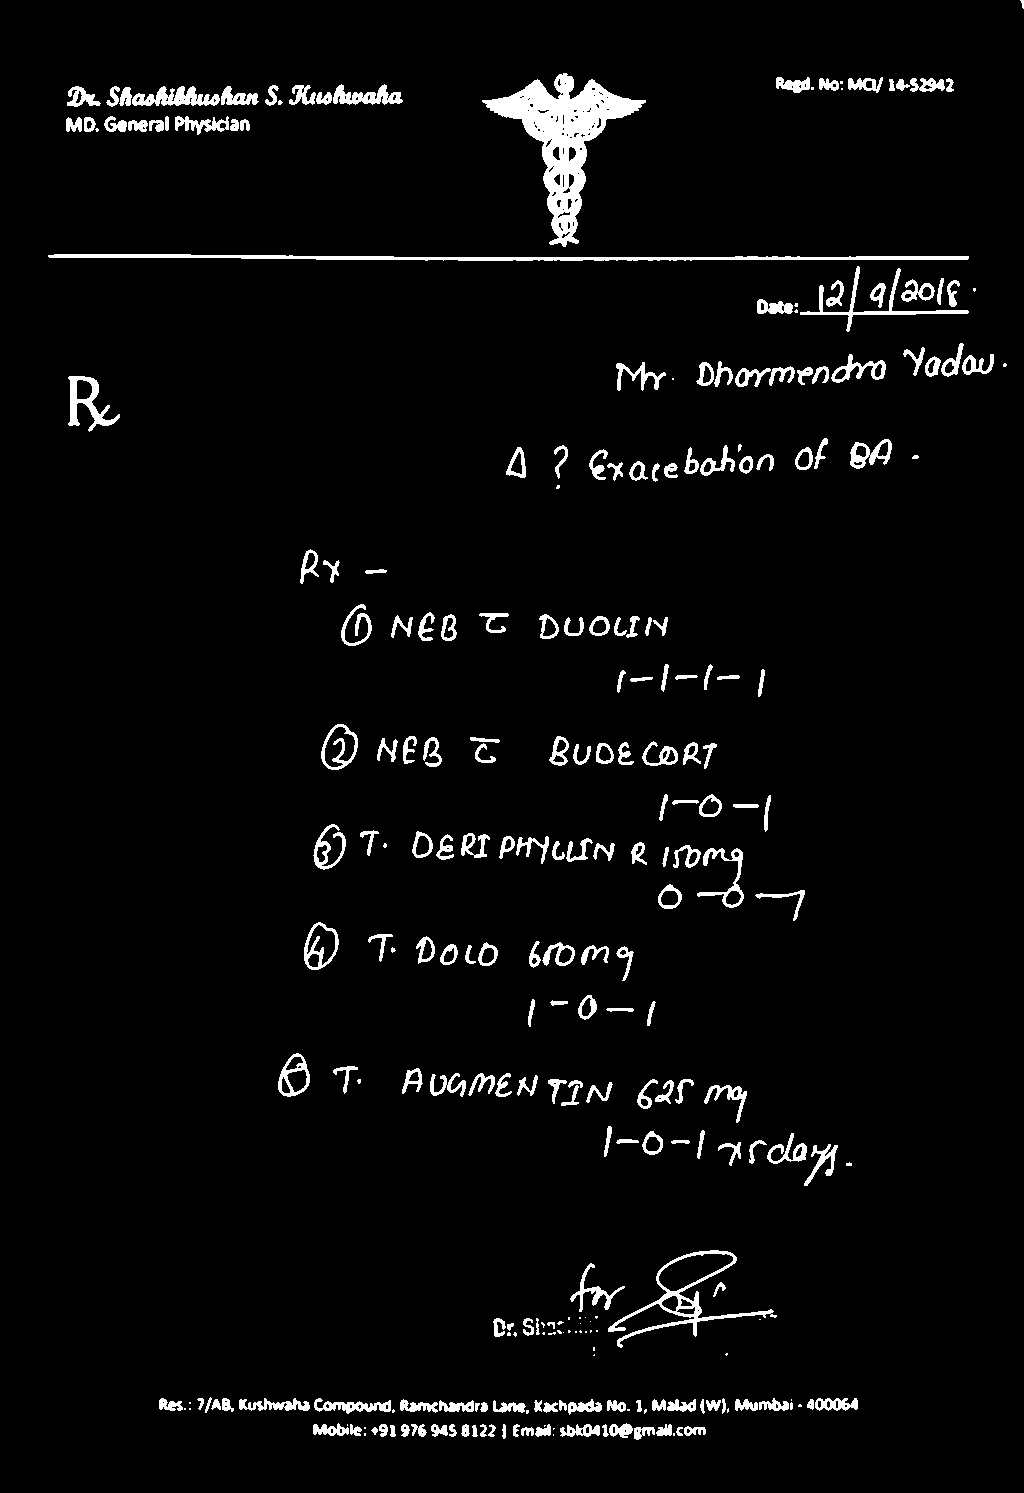 Dr. Shashibhushan S. Kushwaha
MD. General Physician
Regd. No: MCI/ 14-52942
Date: 12/9/2018.
Rx
Mr. Dharmendra Yadav.
Δ ? Exacebation of BA.
Rx -
① NEB c̅ DUOLIN
1-1-1-1
② NEB c̅ BUDECORT
1-0-1
③ T. DERIPHYLLIN R 150mg
0-0-1
④ T. DOLO 650mg
1-0-1
⑤ T. AUGMENTIN 625 mg
1-0-1 x 5 days.
for
Dr. Shashi
Res.: 7/AB, Kushwaha Compound, Ramchandra Lane, Kachpada No. 1, Malad (W), Mumbai - 400064
Mobile: +91 976 945 8122 | Email: sbk0410@gmail.com